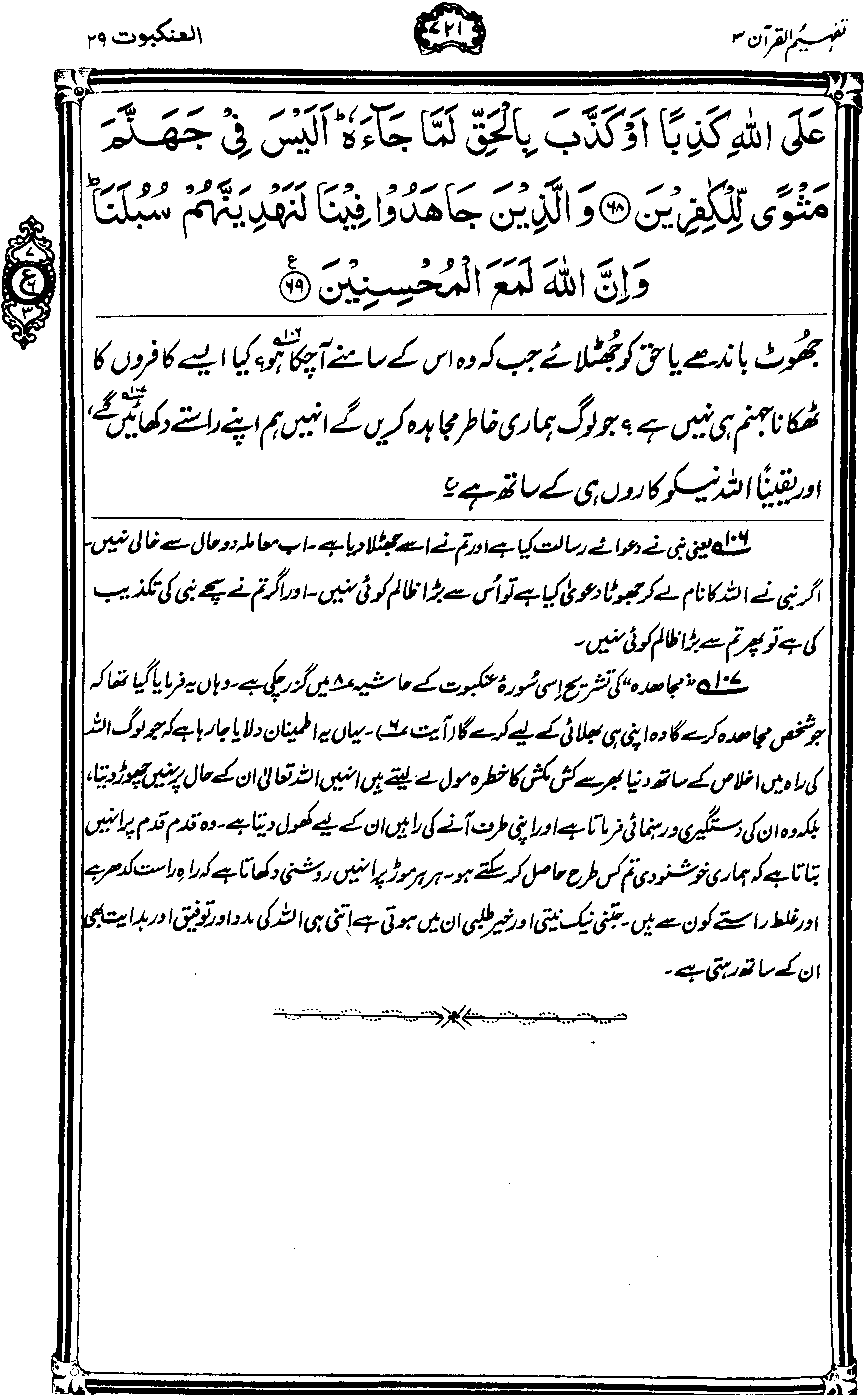 تفہیم القرآن ۳
۷۲۱
العنکبوت ۲۹
عَلَی اللّٰهِ كَذِبًا اَوْ كَذَّبَ بِالْحَقِّ لَمَّا جَآءَهٗ ؕ اَلَیْسَ فِیْ جَهَنَّمَ
مَثْوًی لِّلْكٰفِرِیْنَ ﴿۶۸﴾ وَ الَّذِیْنَ جَاهَدُوْا فِیْنَا لَنَهْدِیَنَّهُمْ سُبُلَنَا ؕ
وَ اِنَّ اللّٰهَ لَمَعَ الْمُحْسِنِیْنَ ﴿۶۹﴾ ع
۷
ع
۶
۳
جھُوٹ باندھے یا حق کو جھُٹلائے جب کہ وہ اس کے سامنے آ چکا ہو؟۱۰۶ کیا ایسے کافروں کا
ٹھکانا جہنم ہی نہیں ہے؟ جو لوگ ہماری خاطر مجاہدہ کریں گے انہیں ہم اپنے راستے دکھائیں گے،۱۰۷
اور یقیناً اللہ نیکوکاروں ہی کے ساتھ ہے۔ ؏
۱۰۶ یعنی نبی نے دعوائے رسالت کیا ہے اور تم نے اسے جھٹلا دیا ہے۔ اب معاملہ دو حال سے خالی نہیں۔
اگر نبی نے اللہ کا نام لے کر جھوٹا دعویٰ کیا ہے تو اُس سے بڑا ظالم کوئی نہیں۔ اور اگر تم نے سچے نبی کی تکذیب
کی ہے تو پھر تم سے بڑا ظالم کوئی نہیں۔
۱۰۷ ”مجاھدہ“ کی تشریح اِسی سُورۂ عنکبوت کے حاشیہ ۸ میں گزر چکی ہے۔ وہاں یہ فرمایا گیا تھا کہ
جو شخص مجاھدہ کرے گا وہ اپنی ہی بھلائی کے لیے کرے گا (آیت ۶)۔ یہاں یہ اطمینان دلایا جا رہا ہے کہ جو لوگ اللہ
کی راہ میں اخلاص کے ساتھ دنیا بھر سے کش مکش کا خطرہ مول لے لیتے ہیں انہیں اللہ تعالیٰ ان کے حال پر نہیں چھوڑ دیتا،
بلکہ وہ ان کی دستگیری و رہنمائی فرماتا ہے اور اپنی طرف آنے کی راہیں ان کے لیے کھول دیتا ہے۔ وہ قدم قدم پر انہیں
بتاتا ہے کہ ہماری خوشنودی تم کس طرح حاصل کر سکتے ہو۔ ہر ہر موڑ پر انہیں روشنی دکھاتا ہے کہ راہِ راست کدھر ہے
اور غلط راستے کون سے ہیں۔ جتنی نیک نیتی اور خیر طلبی ان میں ہوتی ہے اتنی ہی اللہ کی مدد اور توفیق اور ہدایت بھی
ان کے ساتھ رہتی ہے۔